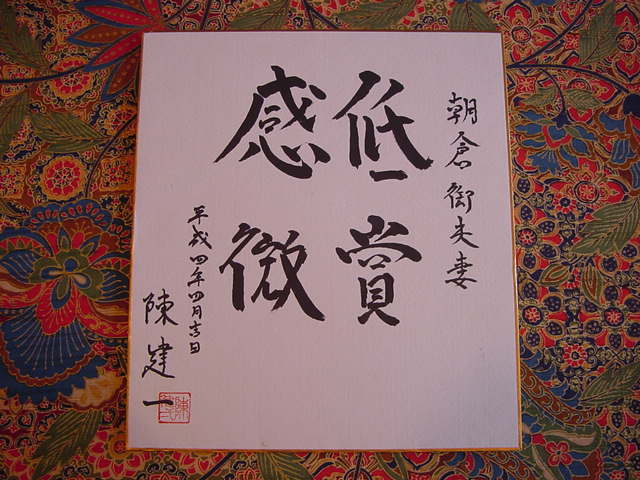 朝倉御夫妻
低賞
感微
平成四年四月吉日
陳建一